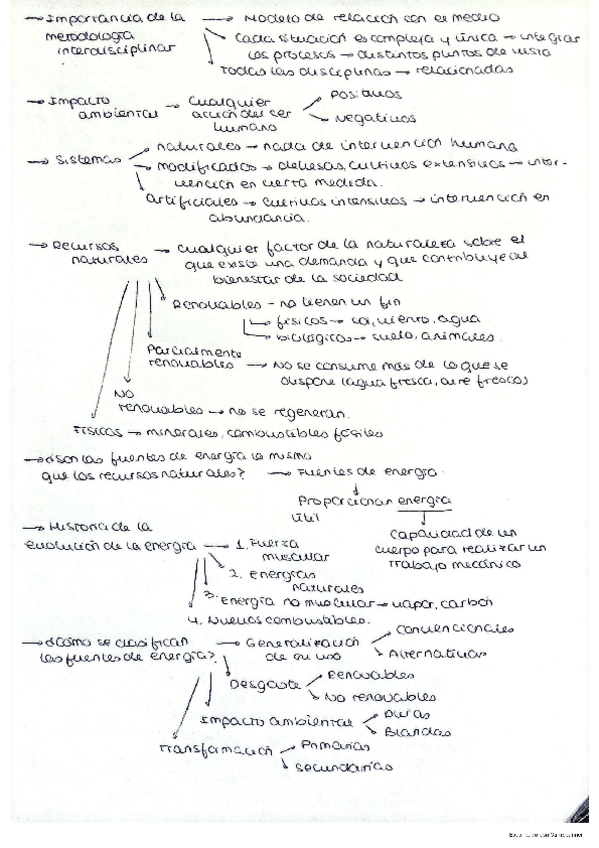 → Importancia de la metodología interdisciplinar → Modelo de relación con el medio
→ Cada situación es compleja y única → integrar
los procesos → distintos puntos de vista
Todas las disciplinas → relacionadas
→ Impacto ambiental → Cualquier acción del ser humano
Positivos
Negativos
→ Sistemas
naturales → nada de intervención humana
modificados → dehesas, cultivos extensivos → inter-
vención en cierta medida.
artificiales → cultivos intensivos → intervención en
abundancia.
→ Recursos naturales → cualquier factor de la naturaleza sobre el
que existe una demanda y que contribuye al
bienestar de la sociedad
Renovables - no tienen un fin
físicos → sol, viento, agua
biológicos → suelo, animales.
Parcialmente
renovables → No se consume más de lo que se
dispone (agua fresca, aire fresco)
No
renovables → no se regeneran.
Físicos → minerales, combustibles fósiles
→ ¿Son las fuentes de energía lo mismo
que los recursos naturales? → Fuentes de energía
Proporcionan energía
útil
Capacidad de un
cuerpo para realizar un
trabajo mecánico
→ Historia de la
evolución de la energía → 1. Fuerza
muscular
2. energías
naturales
3. Energía no muscular → vapor, carbón
4. Nuevos combustibles.
→ ¿Cómo se clasifican
las fuentes de energía? → Generalización
de su uso
Convencionales
Alternativas
Desgaste
Renovables
No renovables
Impacto ambiental
Duras
Blandas
Transformación
Primarias
Secundarias